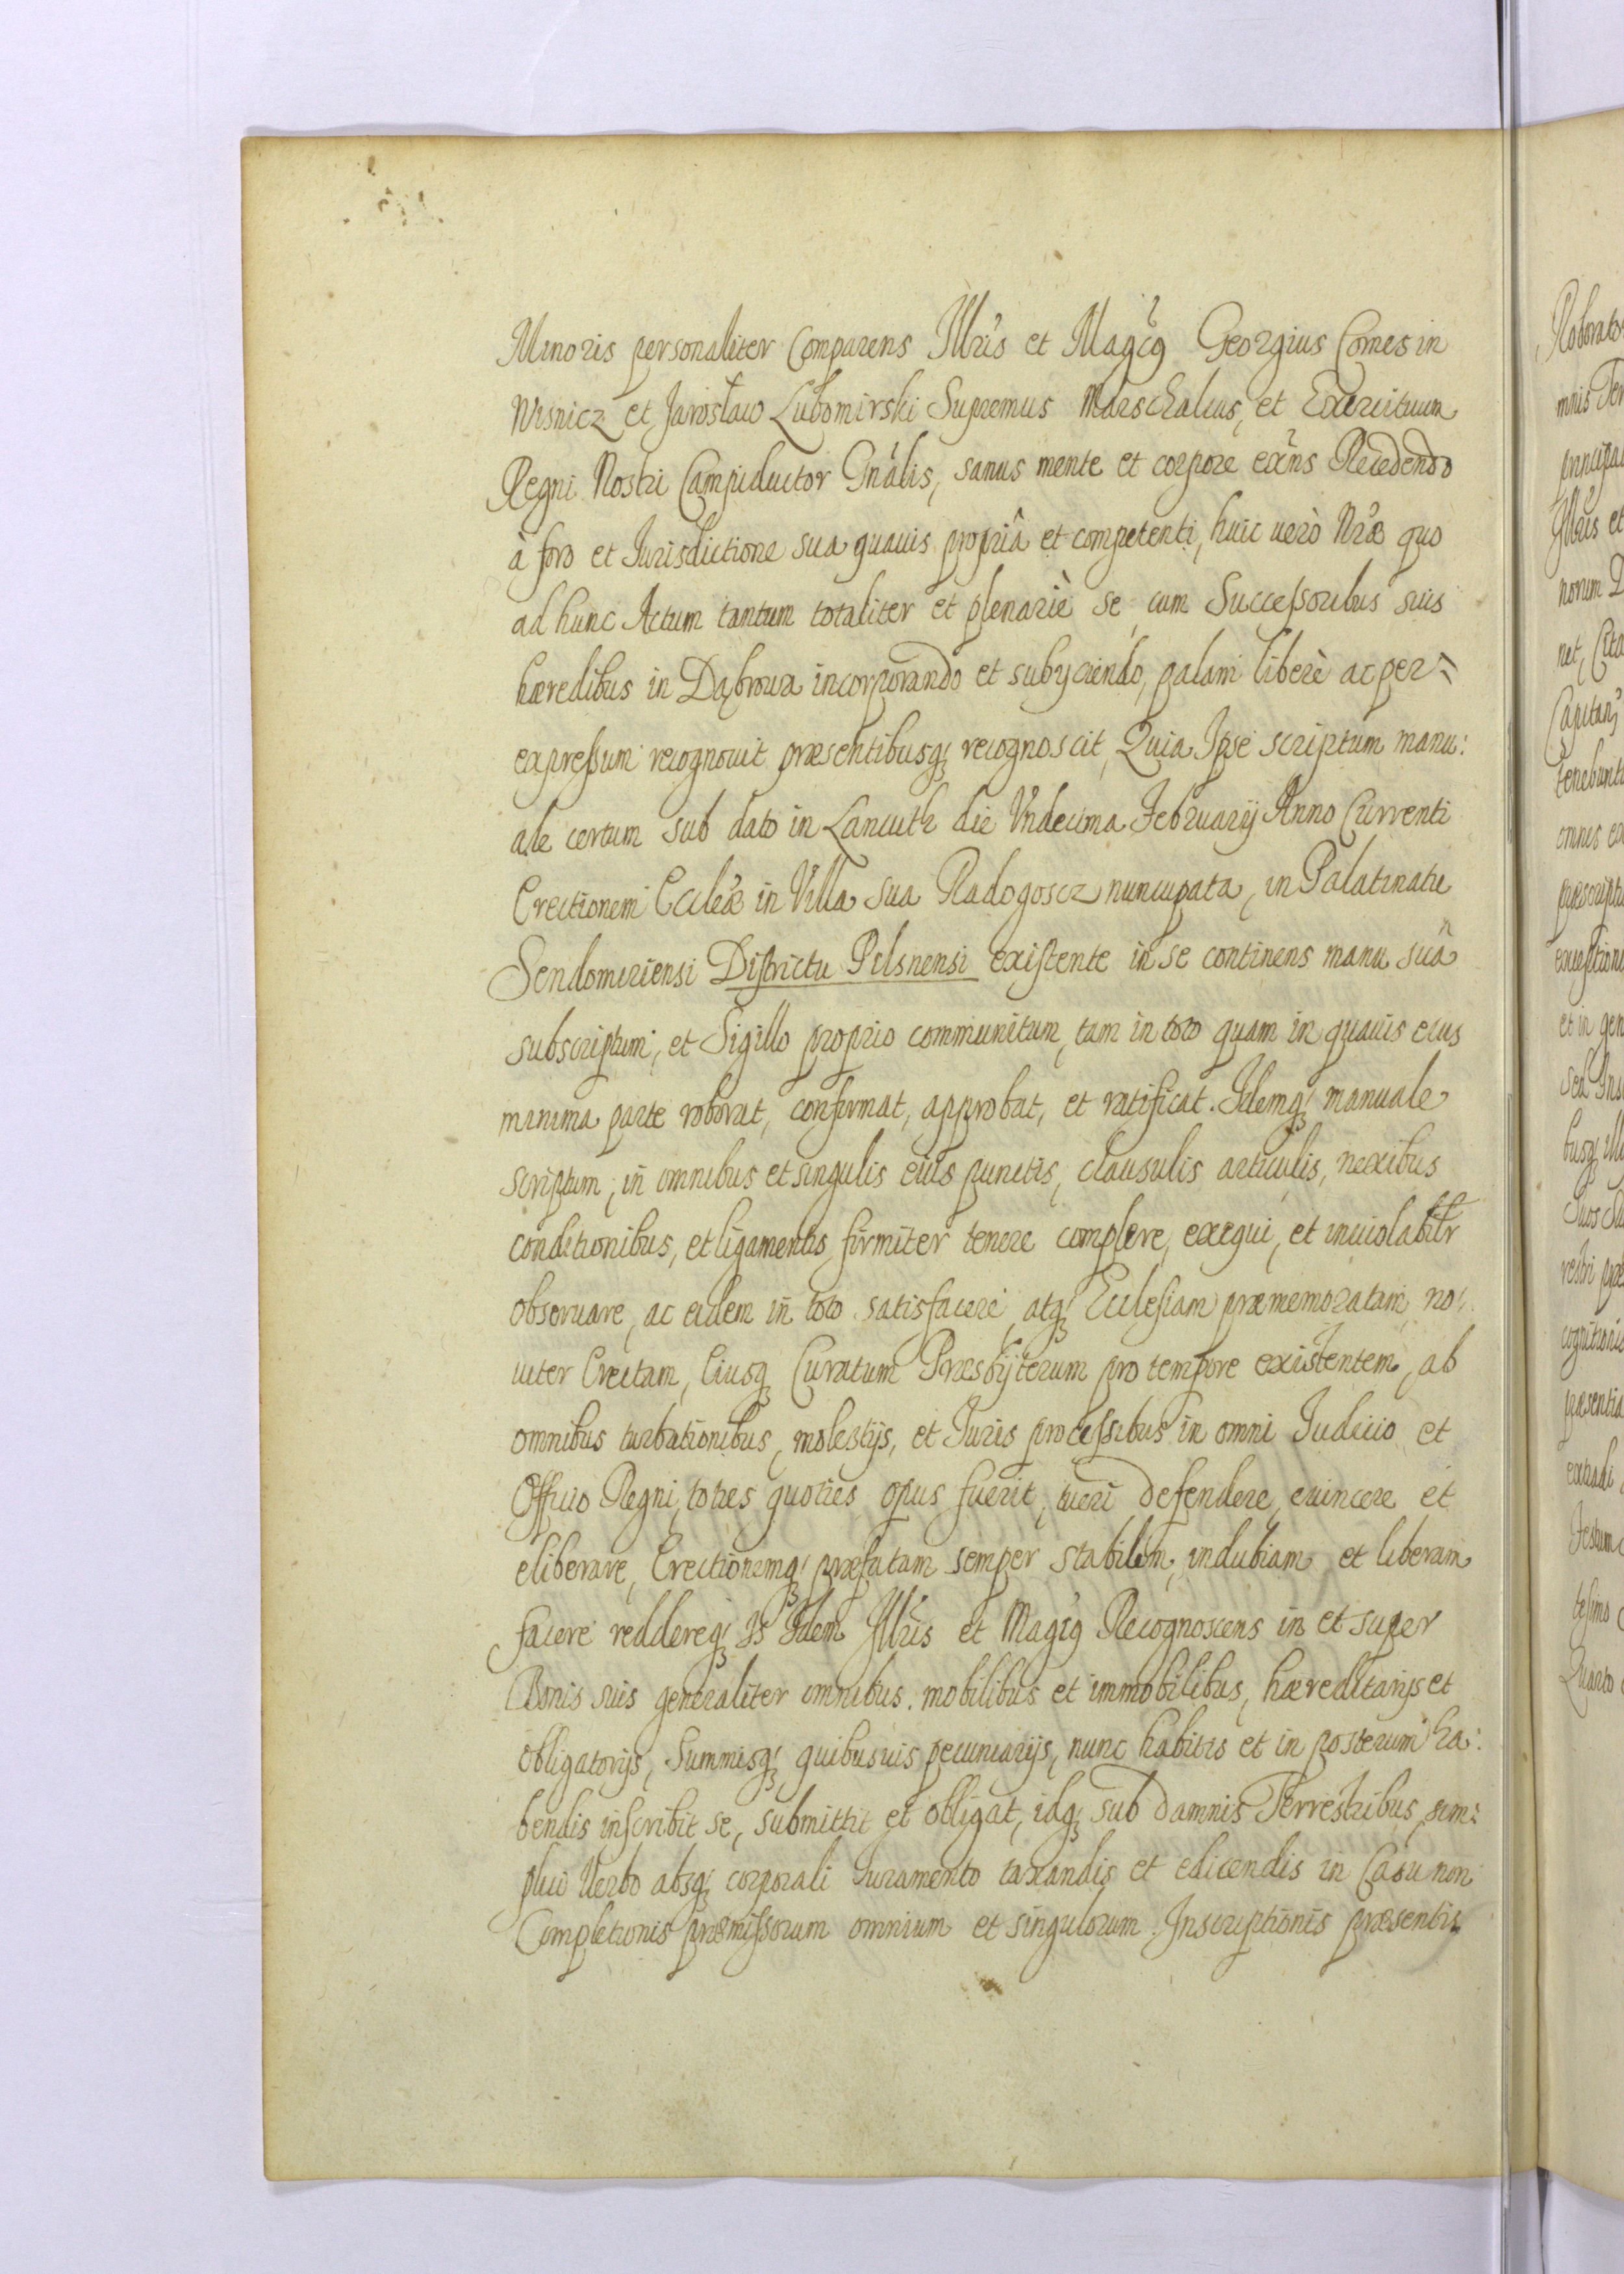 Minoris personaliter Comparens Illris et Magcq Georgius Comes in
Wisnicz et Jarosław Lubomirski Supremus Marschalcus, et Exercituum
Regni Nostri Campiductor Gnalis, sanus mente et corpore exns Recedendo
à foro et Iurisdictione sua quauis propriâ et competenti, huic uerò Nræ quo
ad hunc Actum tantum totaliter et plenariè se cum Successoribus suis
hæredibus in Dąbrowa incorporando et subyciendo, palam liberè ac per=
expressum recognouit præsentibusq recognoscit, Quia Ipse scriptum manu:
ale certum sub dato in Lancuth die Vndecima February Anno Currenti
Erectionem Eccleæ in Villa sua Radogoscz nuncupata, in Palatinatu
Sendomiriensi Districtu Pilsnensi existente in se continens manu suâ
subscriptum, et Sigillo proprio communitum, tam in toto quam in quauis eius
minima parte roborat, confirmat, approbat, et ratificat. Idemq manuale
scriptum, in omnibus et singulis eius punctis, clausulis articulis, nexibus
conditionibus, et ligamentis firmiter tenere complere, exequi, et inuiolabilr
obseruare, ac eidem in toto satisfacere, atq Ecclesiam præmemoratam, no:
uiter Erectam, Eiusq Curatum Præsbyterum pro tempore existentem, ab
omnibus turbationibus, molestijs, et Iuris processibus in omni Iudicio et
Officio Regni, toties quoties opus fuerit, tueri defendere, euincere et
eliberare, Erectionemq præfatam semper stabilem, indubiam et liberam
facere reddereq Is Idem Illris et Magcq Recognoscens in et super
Bonis suis generaliter omnibus. mobilibus et immobilibus, hæreditarijs et
obligatorijs, Summisq quibusuis pecuniarijs, nunc habitis et in posterum ha:
bendis inscribit se, submittit et obligat, idq sub damnis Terrestribus, sim:
plici Verbo absq corporali Iuramento taxandis et edicendis in Casu non
Completionis præmissorum omnium et singulorum. Inscriptionis præsentis